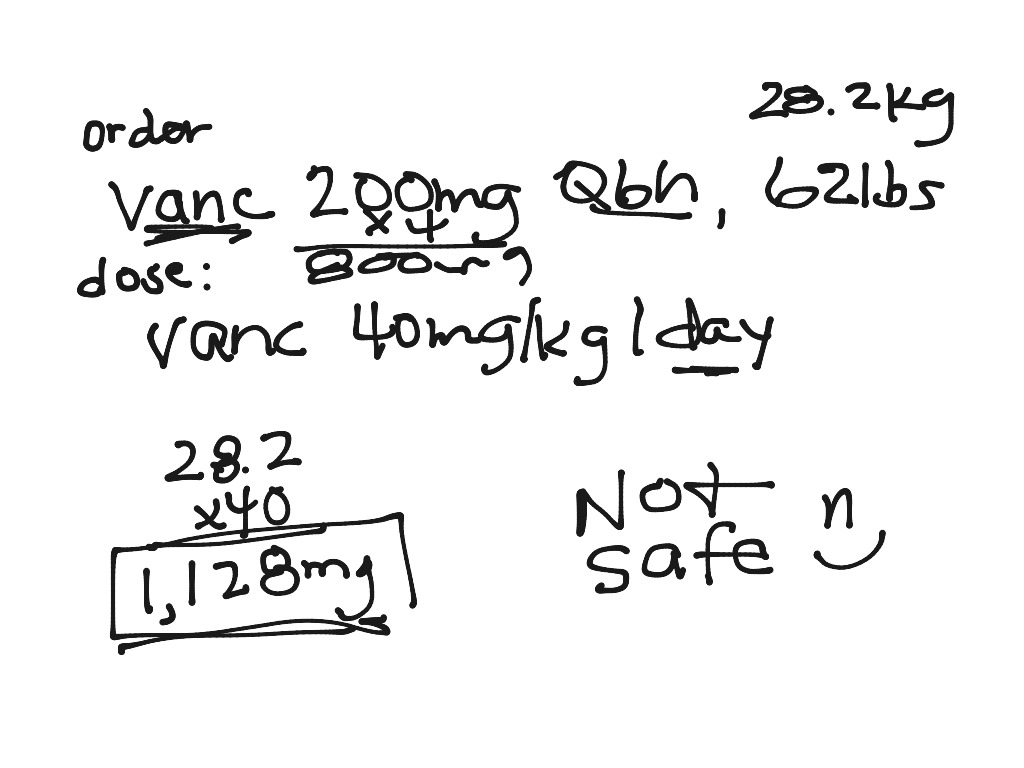 28.2kg
order
vanc 200mg Q6h, 62lbs
x 4
800mg
dose:
vanc 40mg/kg/day
28.2
x40
1,128mg
Not
safe